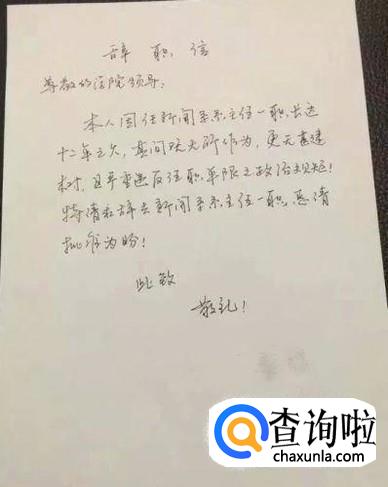 辞职信
尊敬的法院领导:
本人因任新闻系系主任一职长达
十二年之久,其间既无所作为,更无建
树,且严重违反任职年限之政治规矩!
特请求辞去新闻系系主任一职,恳请
批准为盼!
此致
敬礼!
查询啦
chaxunla.com